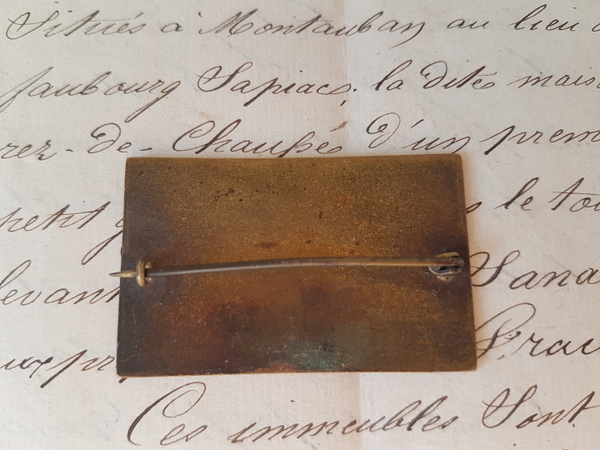 Situés à Montauban au lieu
faubourg Sapiac; la dite mais
rez-de-Chaussé d'un prem
petit le tou
levant Sana
Ces immeubles Sont